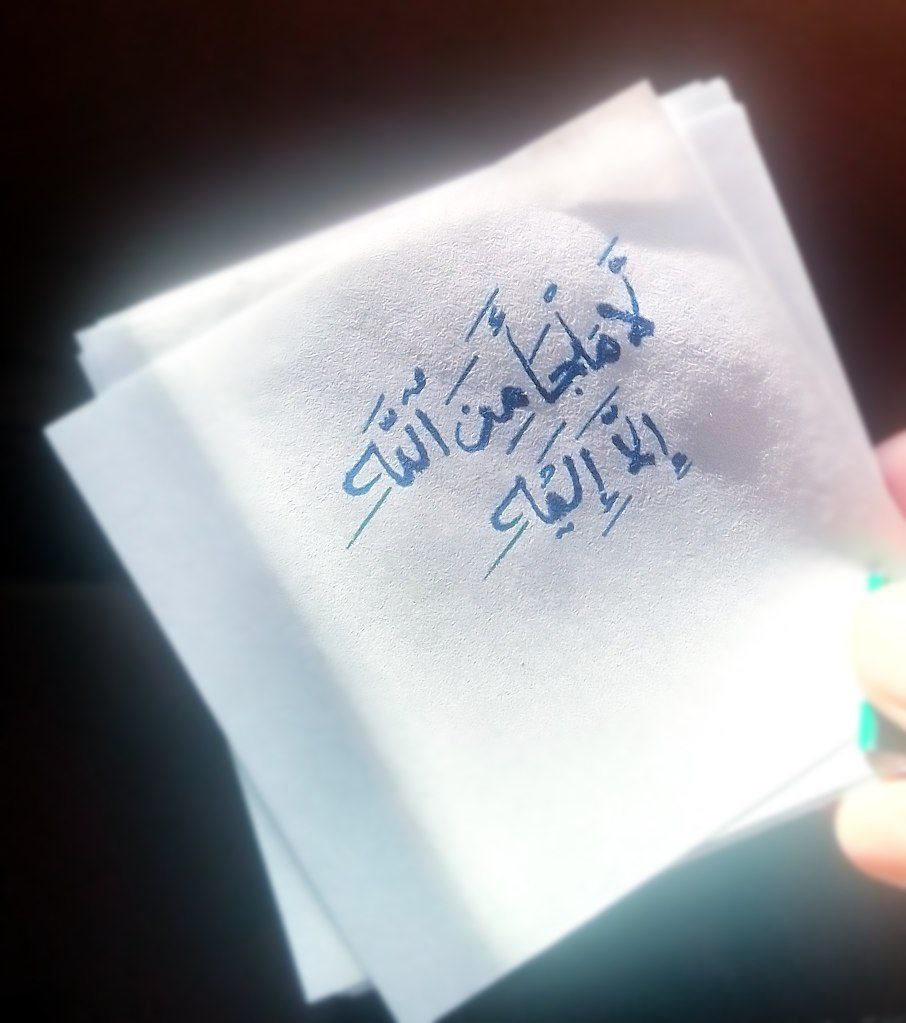 لَا مَلْجَأَ مِنَ اللَّهِ
إِلَّا إِلَيْهِ